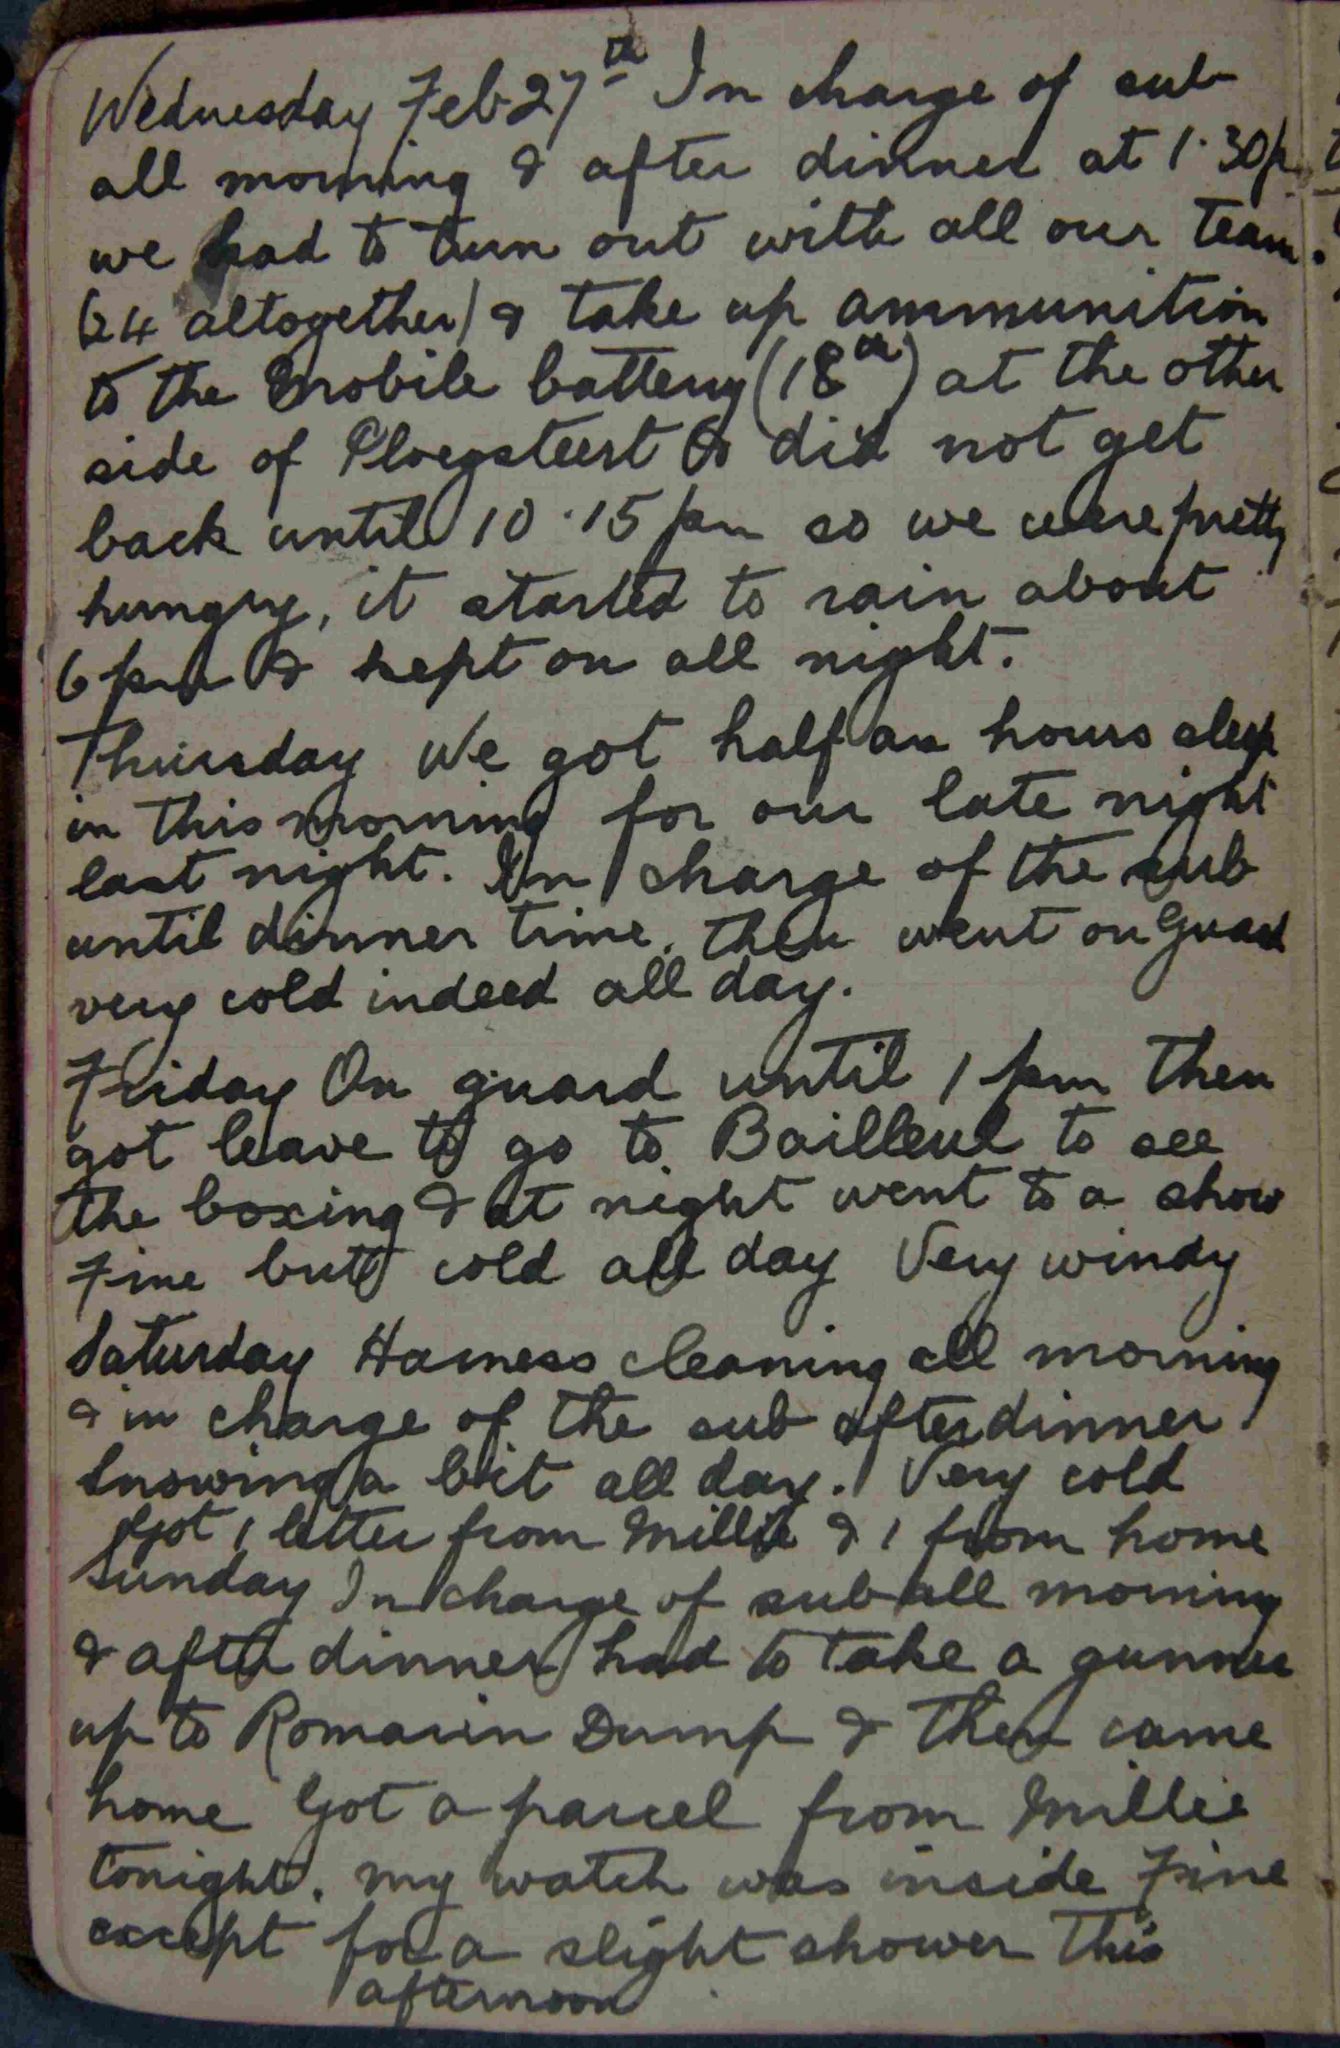 Wednesday Feb 27th In charge of sub
all morning & after dinner at 1.30p
we had to turn out with all our team
(24 altogether) & take up ammunition
to the Mobile battery (18th) at the other
side of Ploegsteert & did not get
back until 10.15 pm so we were pretty
hungry, it started to rain about
6 pm & kept on all night.
Thursday We got half an hours sleep
in this morning for our late night
last night. In charge of the sub
until dinner time, then went on Guard
very cold indeed all day.
Friday On guard until 1 pm then
got leave to go to Bailleul to see
the boxing & at night went to a show
Fine but cold all day Very windy
Saturday Harness cleaning all morning
& in charge of the sub after dinner
Snowing a bit all day. Very cold
Got 1 letter from Millie & 1 from home
Sunday In charge of sub all morning
& after dinner had to take a gunner
up to Romarin Dump & then came
home Got a parcel from Millie
tonight. my watch was inside Fine
except for a slight shower this
afternoon